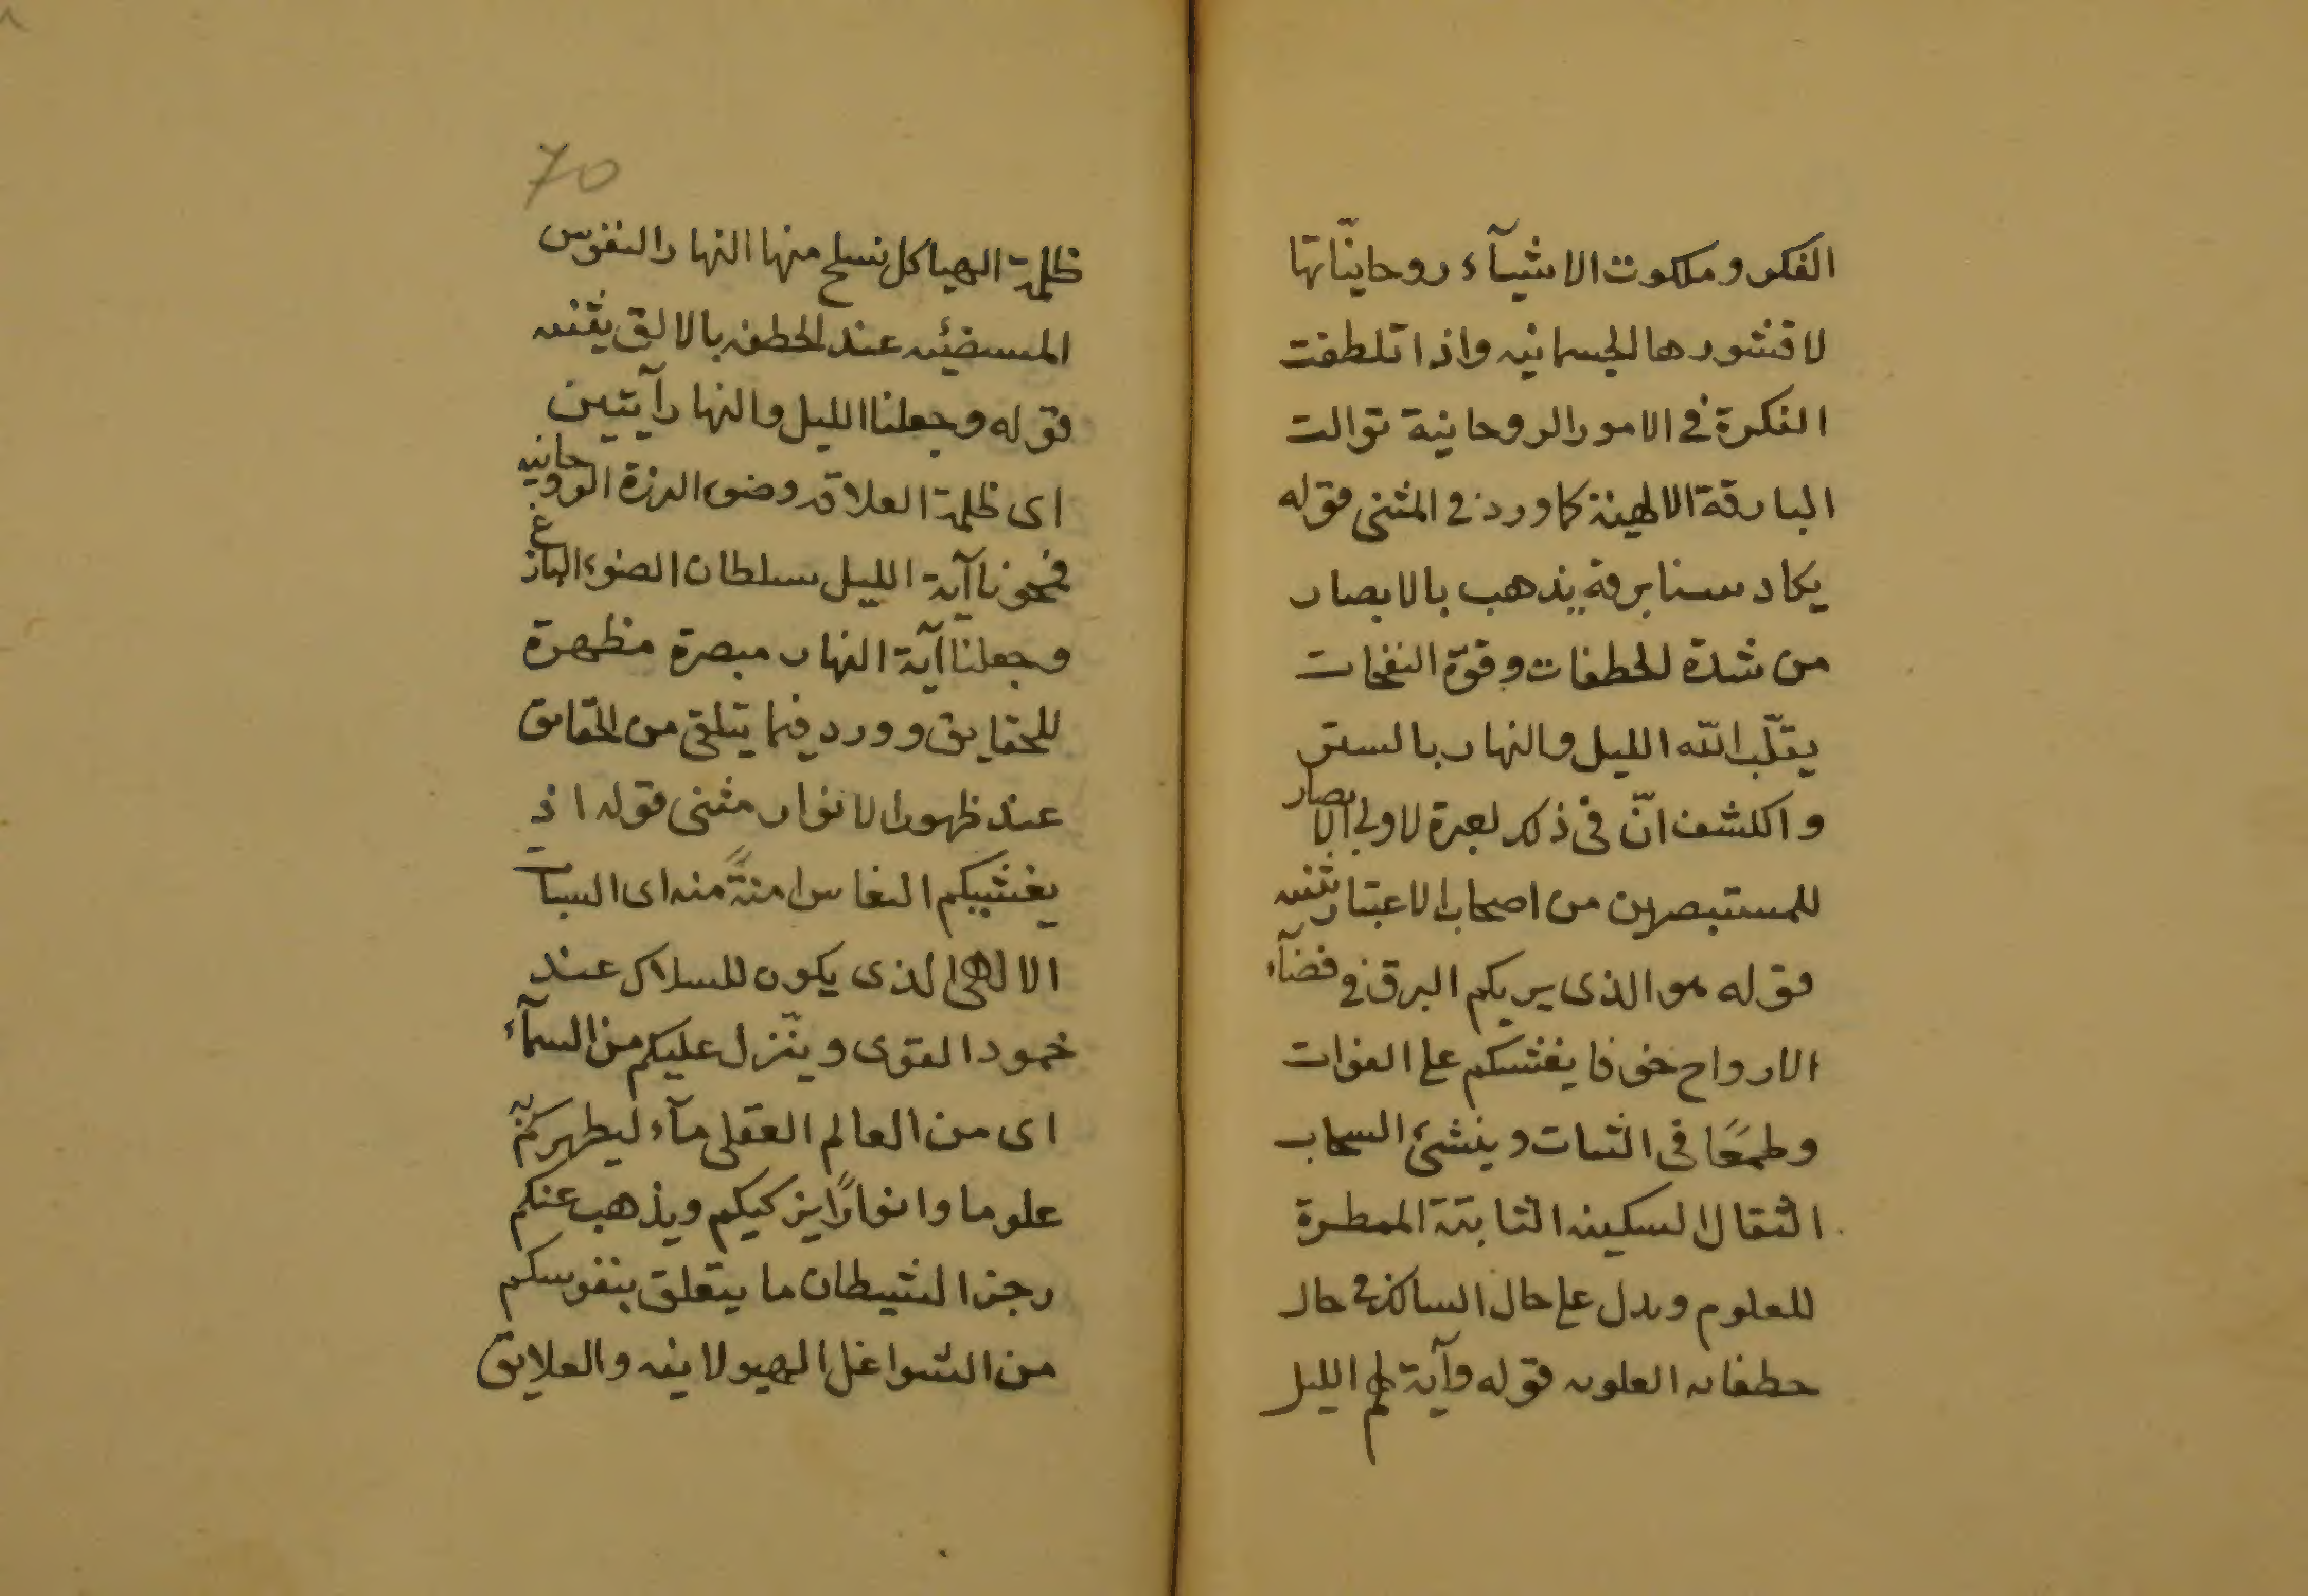 الفكر وملكوت الاشيآء روحانيّاتها
لا قشورها الجسمانيه واذا تلطفت
الفكرة في الامور الروحانية توالت
البارقة الالهية كما ورد في المثنى قوله
يكاد سنا برقه يذهب بالابصار
من شدة الخطفات وقوّة النفحات
يقلّب الله الليل والنهار بالستر
والكشف انّ في ذلك لعبرة لاولي الابصار
للمستبصرين من اصحاب الاعتبار تثنيه
قوله هو الذى يريكم البرق في فضآء
الارواح خوفا يغشكم على الفوات
وطمعًا فى الثبات وينشئ السحاب
الثقال السكينه الثابتة الممطرة
للعلوم ويدل على حال السالك في حال
خطفات العلويه قوله وآية لهم الليل
70
ظلمة الهياكل نسلخ منها النهار النفوس
المستضيئه عند الخطفه بالالق تثنيه
قوله وجعلنا الليل والنهار آيتين
اى ظلمة العلاقه وضوء البرزة الروحانيه
فمحونا آية الليل سلطان الضوء البازغ
وجعلنا آية النهار مبصرة مظهرة
للحقايق وورد فيما يتلقى من الحقايق
عند ظهور الانوار مثنى قوله اذ
يغشيكم النعاس امنةً منه اى السبات
الالهى الذى يكون للسلاك عند
خمود القوى وينّزل عليكم من السمآء
اى من العالم العقلى مآء ليطهركم به
علوما وانوارًا يزكيكم ويذهب عنكم
رجز الشيطان ما يتعلق بنفوسكم
من الشواغل الهيولانيه والعلايق